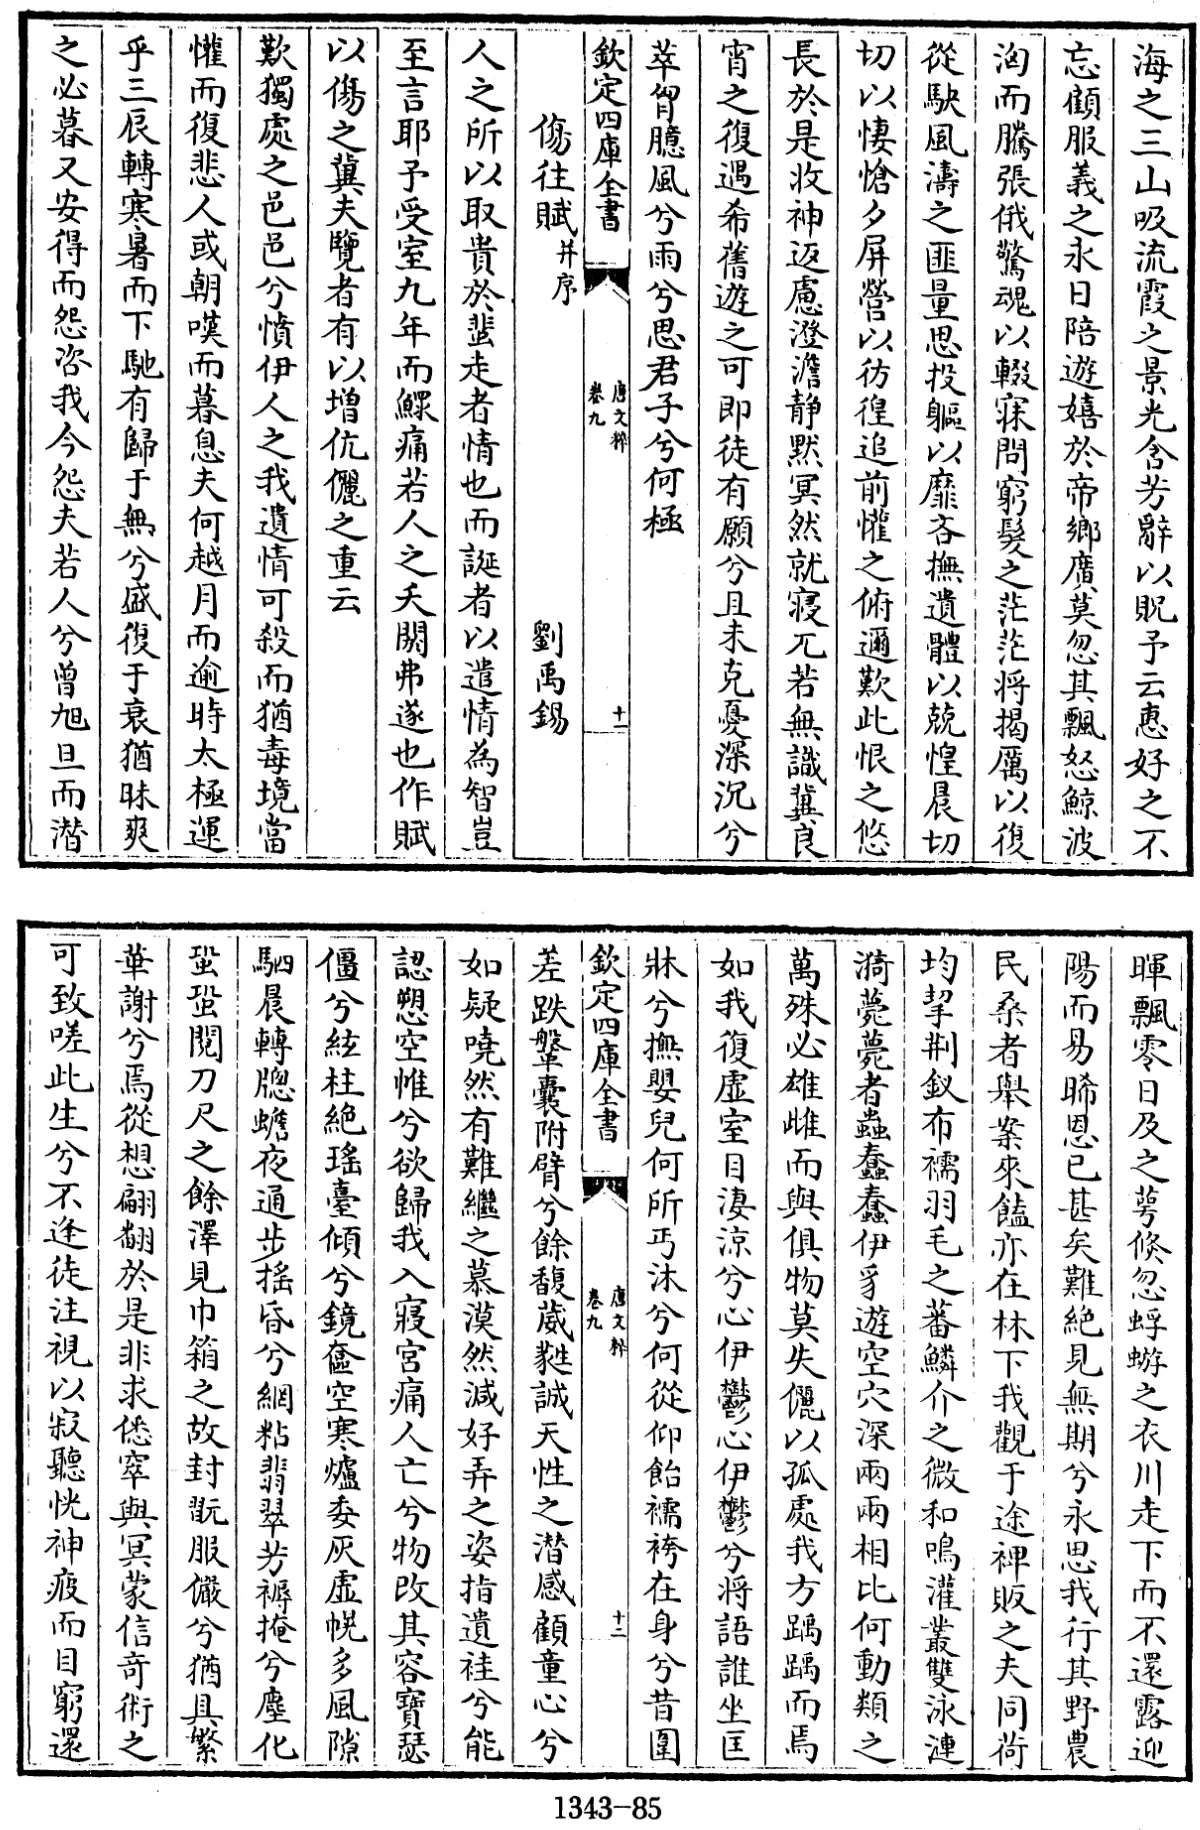 海之三山吸流霞之景光含芳辭以貺予云惠好之不
忘顧服義之永日陪遊嬉於帝鄉廣莫忽其飄怒鯨波
洶而騰張俄驚魂以輟寐問窮髮之茫茫将揭厲以復
從駃風濤之匪量思投軀以靡吝撫遺體以兢惶晨切
切以悽愴夕屏營以彷徨追前懽之俯邇歎此恨之悠
長於是收神返慮澄澹静黙冥然就寢兀若無識冀良
宵之復遇希舊遊之可即徒有願兮且未克憂深沉兮
萃胷臆風兮雨兮思君子兮何極
欽定四庫全書
唐文粹
卷九
十一
傷往賦并序
劉禹錫
人之所以取貴於蜚走者情也而誕者以遣情為智豈
至言耶予受室九年而鰥痛若人之夭閼弗遂也作賦
以傷之冀夫覽者有以增伉儷之重云
歎獨處之邑邑兮憤伊人之我遺情可殺而猶毒境當
懽而復悲人或朝嘆而暮息夫何越月而逾時太極運
乎三辰轉寒暑而下馳有歸于無兮盛復于衰猶昧爽
之必暮又安得而怨咨我今怨夫若人兮曾旭旦而潜
暉飄零日及之萼倐忽蜉蝣之衣川走下而不還露迎
陽而易晞恩已甚矣難絶見無期兮永思我行其野農
民桑者舉案來饁亦在林下我觀于途裨販之夫同荷
均挈荆釵布襦羽毛之蕃鱗介之微和鳴灌叢雙泳漣
漪薨薨者蟲蠢蠢伊豸遊空穴深兩兩相比何動類之
萬殊必雄雌而與俱物莫失儷以孤處我方踽踽而焉
如我復虚室目凄涼兮心伊鬱心伊鬱兮将語誰坐匡
牀兮撫嬰兒何所丐沐兮何從仰飴襦袴在身兮昔圍
欽定四庫全書
唐文粹
卷九
十二
差跌鞶囊附臂兮餘馥葳蕤誠天性之潜感顧童心兮
如疑嘵然有難繼之慕漠然減好弄之姿指遺袿兮能
認愬空帷兮欲歸我入寢宮痛人亡兮物改其容寶瑟
僵兮絃柱絶瑤臺傾兮鏡奩空寒爐委灰虚幌多風隙
駟晨轉牕蟾夜通步摇昏兮網粘翡翠芳褥掩兮塵化
蛩蛩閱刀尺之餘澤見巾箱之故封翫服儼兮猶具繁
華謝兮焉從想翩翻於是非求倐窣與冥蒙信奇術之
可致嗟此生兮不逢徒注視以寂聽恍神疲而目窮還
1343-85